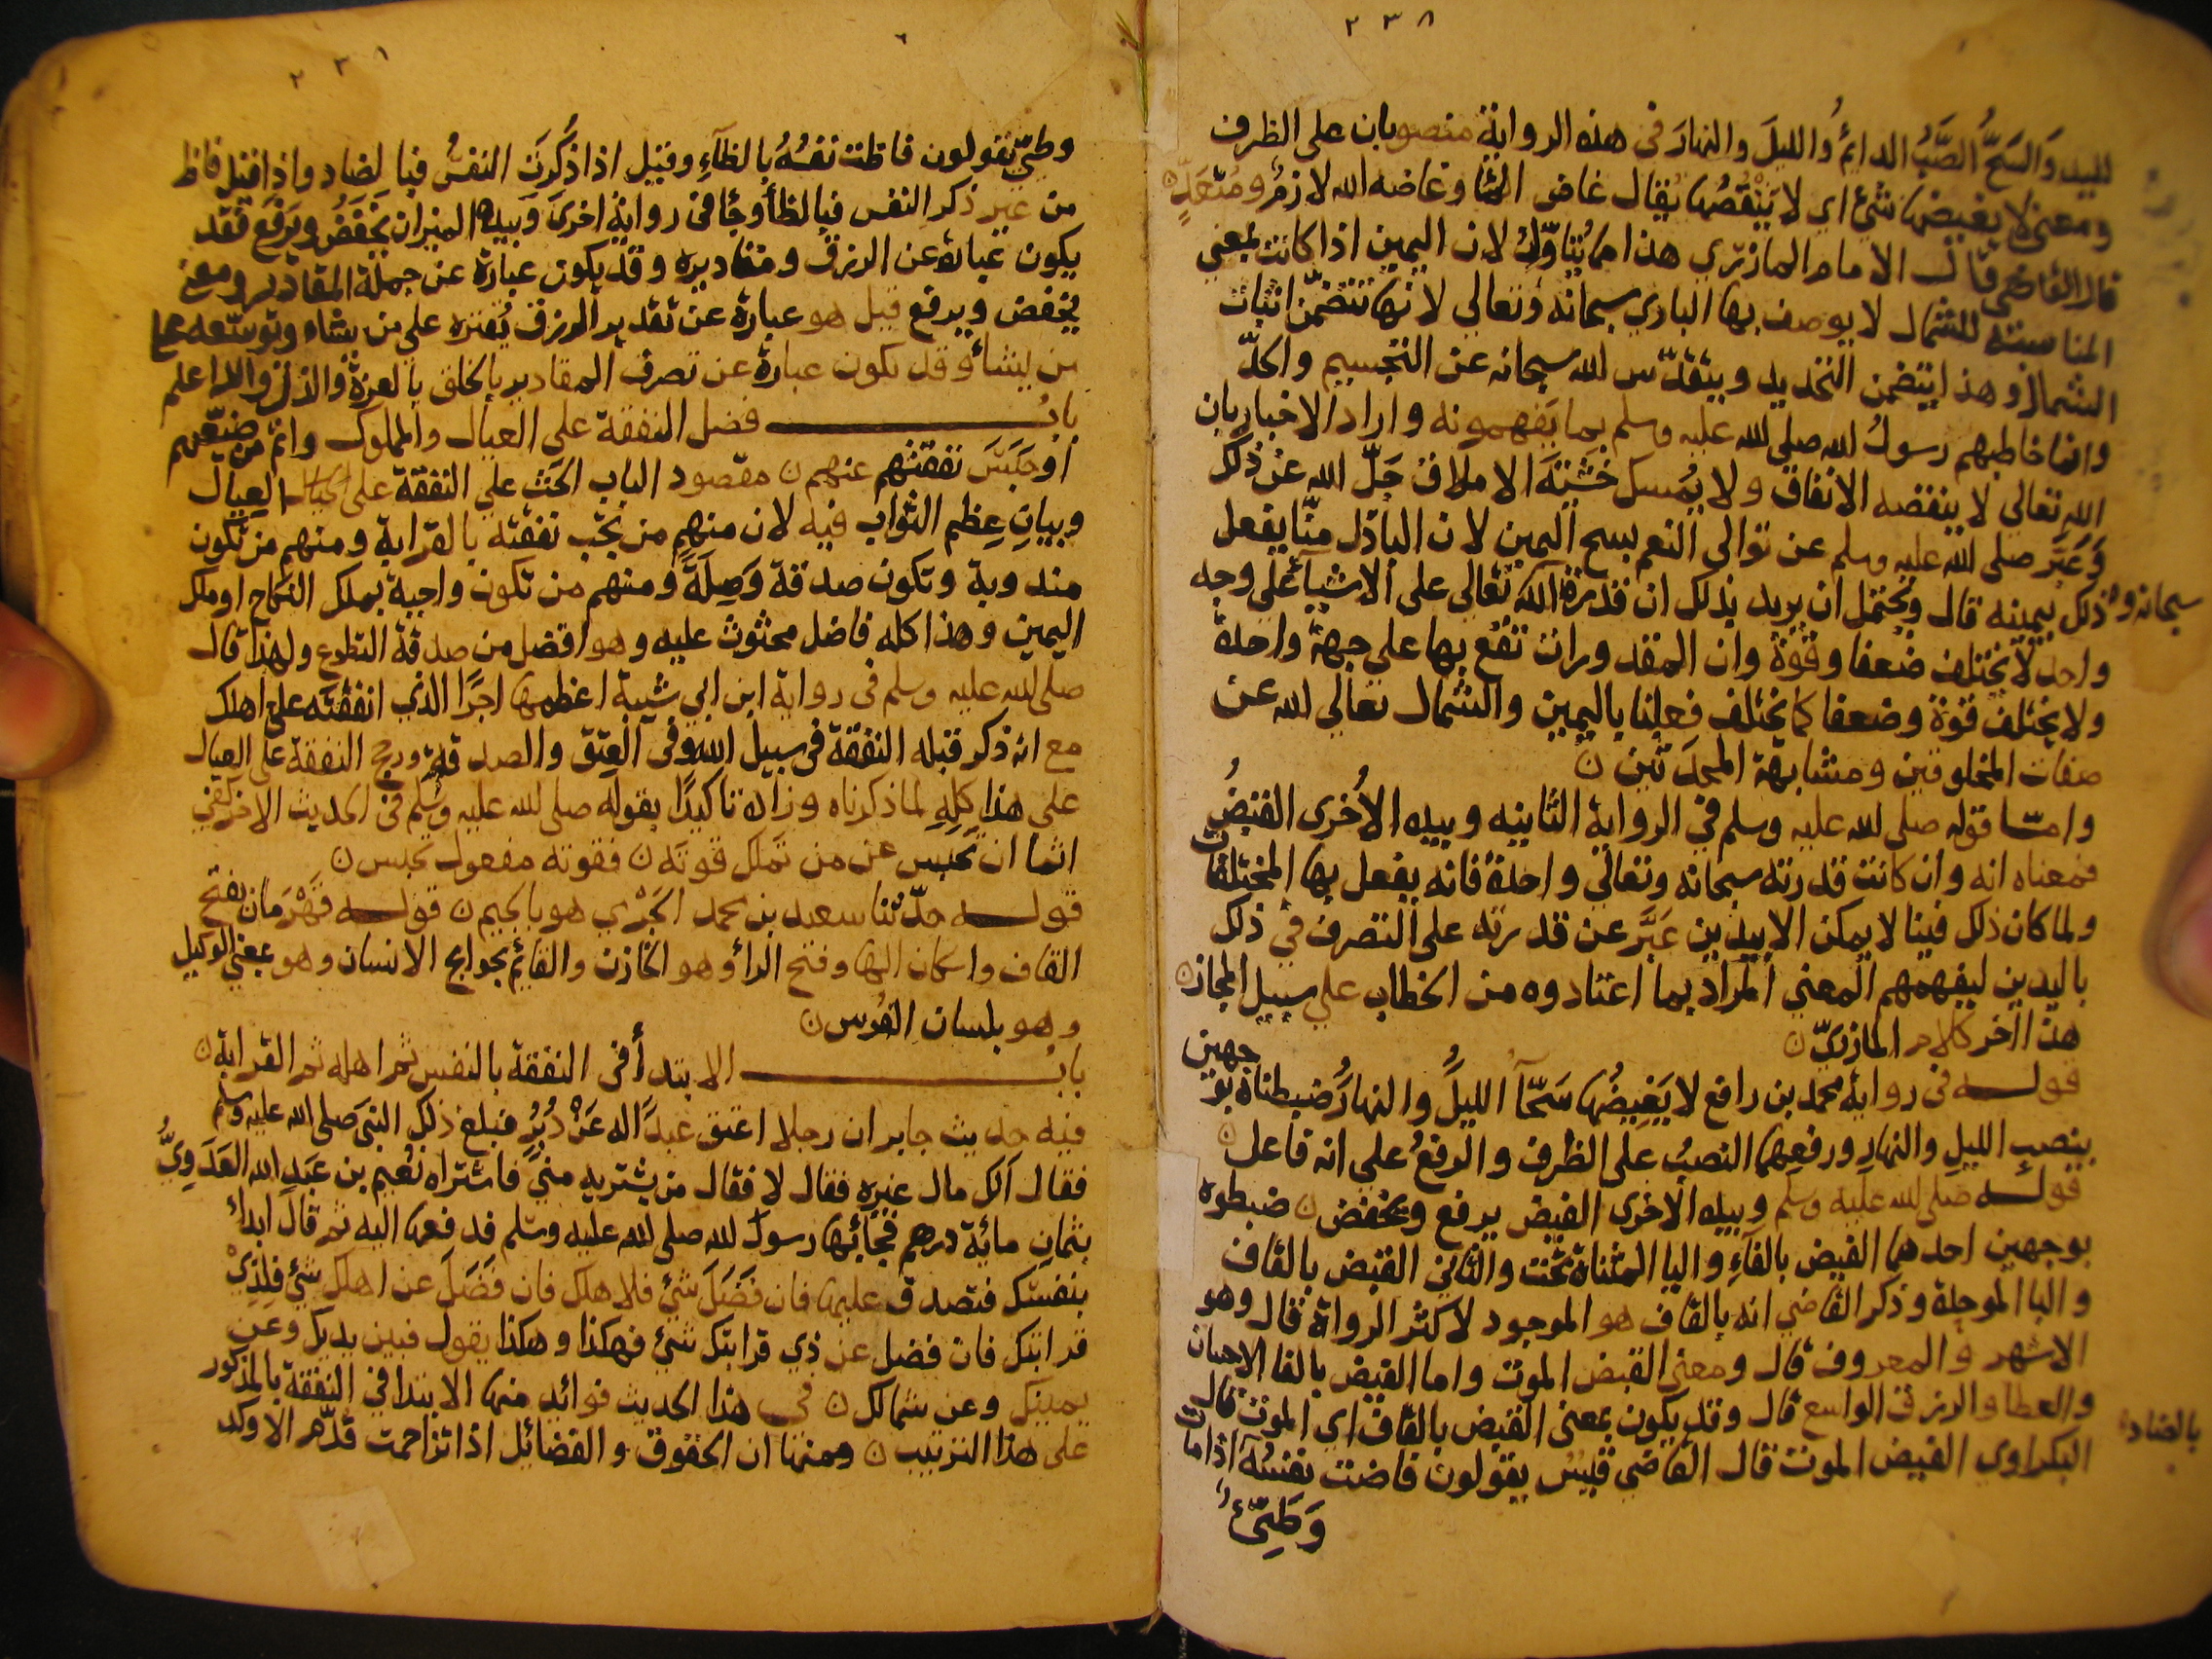 ٢٣٨
لليد والسَّحُّ الصَّبُّ الدائمُ والليلَ والنهارَ في هذه الرواية منصوبان على الظرف
ومعنى لا يغيضها شئ اي لا يَنْقُصُها يُقال غاض الما وغاضه الله لازمٌ ومُتَعَدٍّ
قال القاضي قال الامام المازري هذا مما يُتَاوَّلُ لان اليمين اذا كانت بمعنى
المناسبة للشمال لا يوصف بها الباري سبحانه وتعالى لانها تتضمّن اثبات
الشمال وهذا يتضمن التحديد ويتقدّس الله سبحانه عن التجسيم والحدّ
وانما خاطبهم رسول الله صلى الله عليه وسلم بما يفهمونه واراد الاخبار بان
الله تعالى لا ينقصه الانفاق ولا يُمسك خَشْيَةَ الاملاق جَلّ الله عن ذلك
وَعَبَّر صلى الله عليه وسلم عن توالى النعم بسح اليمين لان الباذل منّا يفعل
ذلك بيمينه قال ويُحتمل ان يريد بذلك ان قدرة الله تعالى على الاشياء على وجه
سبحانه و
واحد لا يختلف ضعفا وقوةً وان المقدورات تقع بها على جهة واحدة
ولا يختلف قوة وضعفا كما يختلف فعلنا باليمين والشمال تعالى الله عن
صفات المخلوقين ومشابهة المحدَثين ن
وامّا قوله صلى الله عليه وسلم في الرواية الثانيه وبيده الأخرى القبضُ
فمعناه انه وان كانت قدرته سبحانه وتعالى واحدة فانه يفعل بها المختلفات
ولما كان ذلك فينا لا يمكن الا بيدين عَبَّر عن قدرته على التصرف في ذلك
باليدين ليفهمهم المعنى المراد بما اعتادوه من الخطاب على سبيل المجاز ن
هذا آخر كلام المازريّ ن
قوله في رواية محمد بن رافع لا يَغِيضُها سَحَّآءُ الليلُ والنهارُ ضبطناه بوجهين
بنصب الليل والنهارِ ورفعِهما النصبُ على الظرف والرفعُ على انه فاعل ن
قوله صلى الله عليه وسلم وبيده الأخرى القبض يرفع ويخفض ن ضبطوه
بوجهين احدهما الفيض بالفاءِ واليا المثناة تحت والثاني القبض بالقاف
والبا الموحدة وذكر القاضي انه بالقاف هو الموجود لاكثر الرواة قال وهو
الاشهر والمعروف قال ومعنى القبض الموت واما الفيض بالفا الاحسان
والعطا والرزق الواسع قال وقد يكون بمعنى القبض بالقاف اي الموت قال
البكراوي الفيض الموت قال القاضي قيسُ يقولون فاضت نفسُهُ اذا مات
بالضاد
وَطَيّئُ
٢٣٨
وطيّ يقولون فاظت نفسُهُ بالظآءِ وقيل اذا ذُكرَت النفسُ فبا لضاد واذا قيل فاظ
من غير ذكر النفس فبالظا وجا في رواية اخرى وبيده الميزان يَخْفِضُ ويَرفَع فقد
يكون عبارةً عن الرزق ومقاديره وقد يكون عبارة عن جملة المقادير ومعنى
يخفض ويرفع قيل هو عبارة عن تقدير الرزق يُقتره على من يشاء وتوسّعه على
من يشأ وقد تكون عبارة عن تصرف المقادير بالخلق بالعزة والذل والله اعلم
بابُ فضل النفقة على العيال والمملوك واثم من ضيّعهم
اوحَبَسَ نفقتهم عنهم ن مقصود الباب الحث على النفقة على العيال
وبيانِ عِظم الثواب فيه لان منهم من تجب نفقته بالقرابة ومنهم من تكون
مندوبة وتكون صدقة وَصِلَةً ومنهم من تكون واجبة بملك النكاح او ملك
اليمين وهذا كله فاضل محثوث عليه وهو افضل من صدقة التطوع ولهذا قال
صلى الله عليه وسلم في رواية ابن ابي شيبة اعظمها اجرًا الذي انفقته على اهلك
مع انه ذكر قبله النفقة في سبيل الله وفي العِتق والصدقة ورجح النفقة على العيال
على هذا كلِه لما ذكرناه وزاده تاكيدًا بقوله صلى الله عليه وسلم في الحديث الاخر كفى
اثما ان تحبس عن من تملك قوتَه ن فقوته مفعول تحبس ن
قوله حدّثنا سعيد بن محمد الجَرْمي هو بالجيم ن قوله قَهْرَمان بفتح
القاف واسكان الها وفتح الرأ وهو الخازن والقائم بحوايج الانسان وهو بمعنى الوكيل
وهو بلسان الفُرس ن
بابُ الابتدأ في النفقة بالنفس ثم اهله ثم القرابة ن
فيه حديث جابر ان رجلا اعتق عبدًا له عَنْ دُبُرٍ فبلغ ذلك النبى صلى الله عليه وسلم
فقال ألك مال غيره فقال لا فقال من يشتريه مني فاشتراه نُعيم بن عَبدِ الله العَدَويُّ
بثمانِ مائة درهم فجآئها رسول الله صلى الله عليه وسلم فدفعها اليه ثم قال ابدأ
بنفسك فتصدق عليها فان فَضَلَ شئ فلاهلك فان فَضَلَ عن اهلك شئ فلِذِيْ
قرابتك فان فضل عن ذي قرابتك شئ فهكذا وهكذا يقول فبين يديك وعن
يمينك وعن شمالك ن في هذا الحديث فوائد منها الابتدا في النفقة بالمذكور
على هذا الترتيب ن ومنها ان الحقوق والفضائل اذا تزاحمت قدّم الاوكد